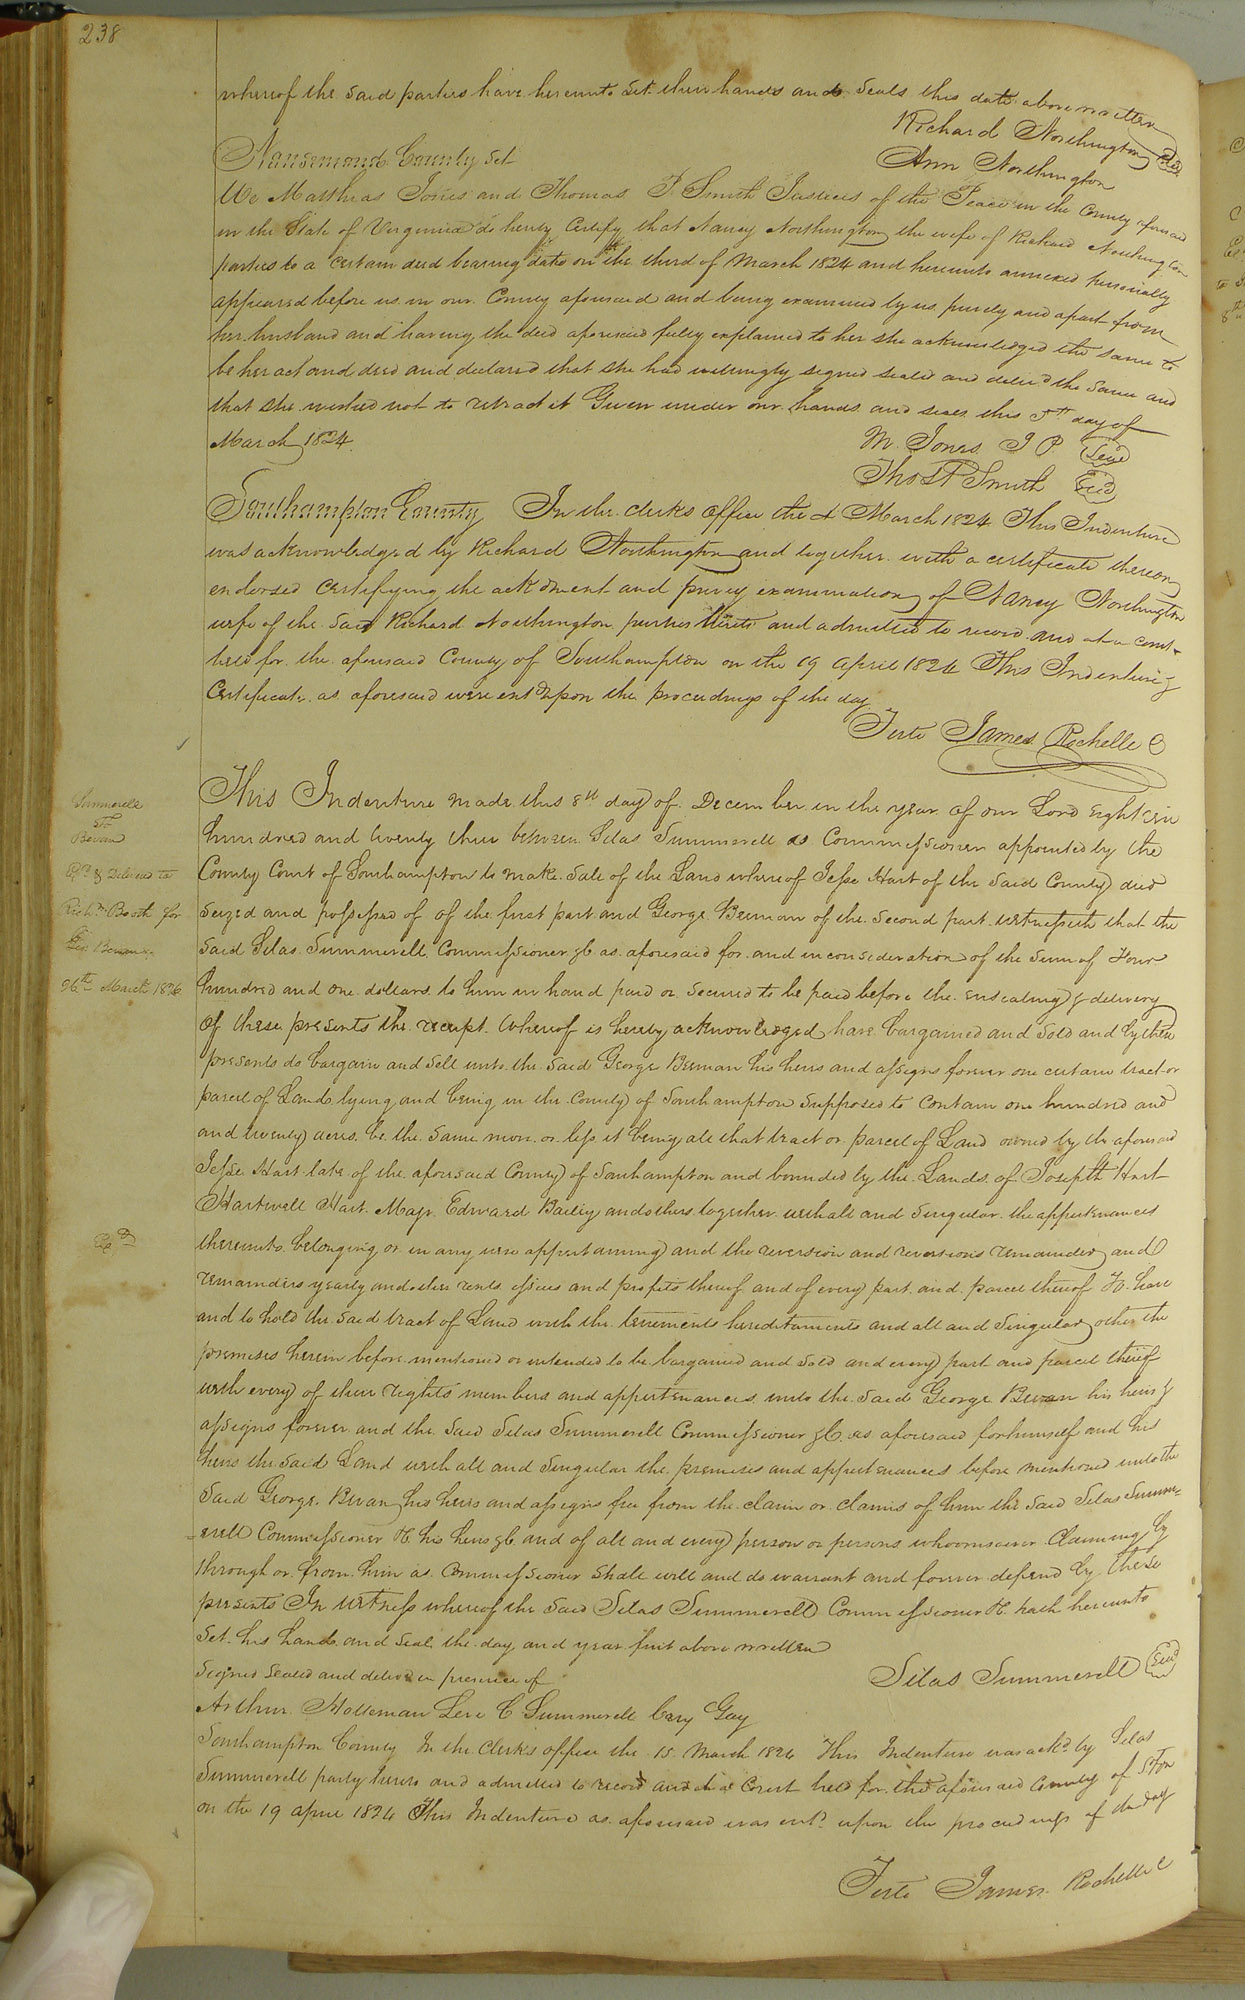 238
whereof the said parties have hereunto set their hands and seals this date above written
Richard Northington Seal
Ann Northington
Nansemond County Set
We Matthias Jones and Thomas P. Smith Justices of the Peace in the County aforesaid
in the State of Virginia do hereby Certify that Nancy Northington the wife of Richard Northington
parties to a certain deed bearing date on the third of March 1824 and hereunto annexed personally
appeared before us in our County aforesaid and being examined by us privily and apart from
her husband and having the deed aforesaid fully explained to her she acknowledged the same to
be her act and deed and declared that she had willingly signed sealed and delivd the same and
that she wished not to retract it Given under our hands and seals this 5th day of
March 1824.
M. Jones J P. Seal
Thos P Smith Seal
Southampton County In the clerks office the March 1824 This Indenture
was acknowledged by Richard Northington and together with a certificate thereon
endorsed certifying the ackdment and privy examination of Nancy Northington
wife of the said Richard Northington parties thereto and admitted to record and at a court
held for the aforesaid County of Southampton on the 19 April 1824 This Indenture &
Certificate as aforesaid were entd upon the proceedings of the day.
Teste James Rochelle C
Summerell
To
Bevan
Exd & Delivered to
Richd Booth for
Geo Bevan
26th March 1826
This Indenture made this 8th day of December in the year of our Lord eighteen
hundred and twenty three between Silas Summerell as Commissioner appointed by the
County Court of Southampton to make sale of the Land whereof Jesse Hart of the said County died
seized and possessed of of the first part and George Bevan of the second part witnesseth that the
said Silas Summerell Commissioner &c as aforesaid for and in consideration of the sum of Four
hundred and one dollars to him in hand paid or secured to be paid before the ensealing & delivery
of these presents the receipt whereof is hereby acknowledged have bargained and sold and by these
presents do bargain and sell unto the said George Bevan his heirs and assigns forever one certain tract or
parcel of Land lying and being in the County of Southampton supposed to contain one hundred and
and twenty acres be the same more or less it being all that tract or parcel of Land owned by the aforesaid
Jesse Hart late of the aforesaid County of Southampton and bounded by the Lands of Joseph Hart
Hartwell Hart Majr Edward Bailey and others together with all and singular the appurtenances
thereunto belonging or in any wise appertaining and the reversion and reversions remainder and
remainders yearly and other rents issues and profits thereof and of every part and parcel thereof To have
and to hold the said tract of Land with the tenements hereditaments and all and singular other the
premises herein before mentioned or intended to be bargained and sold and every part and parcel thereof
with every of their rights members and appurtenances unto the said George Bevan his heirs &
assigns forever and the said Silas Summerell Commissioner &c as aforesaid for himself and his
heirs the said Land with all and singular the premises and appurtenances before mentioned unto the
said George Bevan his heirs and assigns free from the claim or claims of him the said Silas Summe-
-rell Commissioner &c his heirs &c and of all and every person or persons whoomsoever Claiming by
through or from him as Commissioner shall will and do warrant and forever defend by these
presents In witness whereof the said Silas Summerell Commissioner &c hath hereunto
set his hand and seal the day and year first above written
Signed Sealed and delivd in presence of
Silas Summerell Seal
Arthur Holleman Levi C Summerell Cary Gay
Southampton County In the Clerks office the 15 March 1824 This Indenture was ackd by Silas
Summerell party thereto and admitted to record and at a Court held for the aforesaid County of Ston
on the 19 april 1824 This Indenture as aforesaid was entd upon the proceedings of the day
Teste James Rochelle C